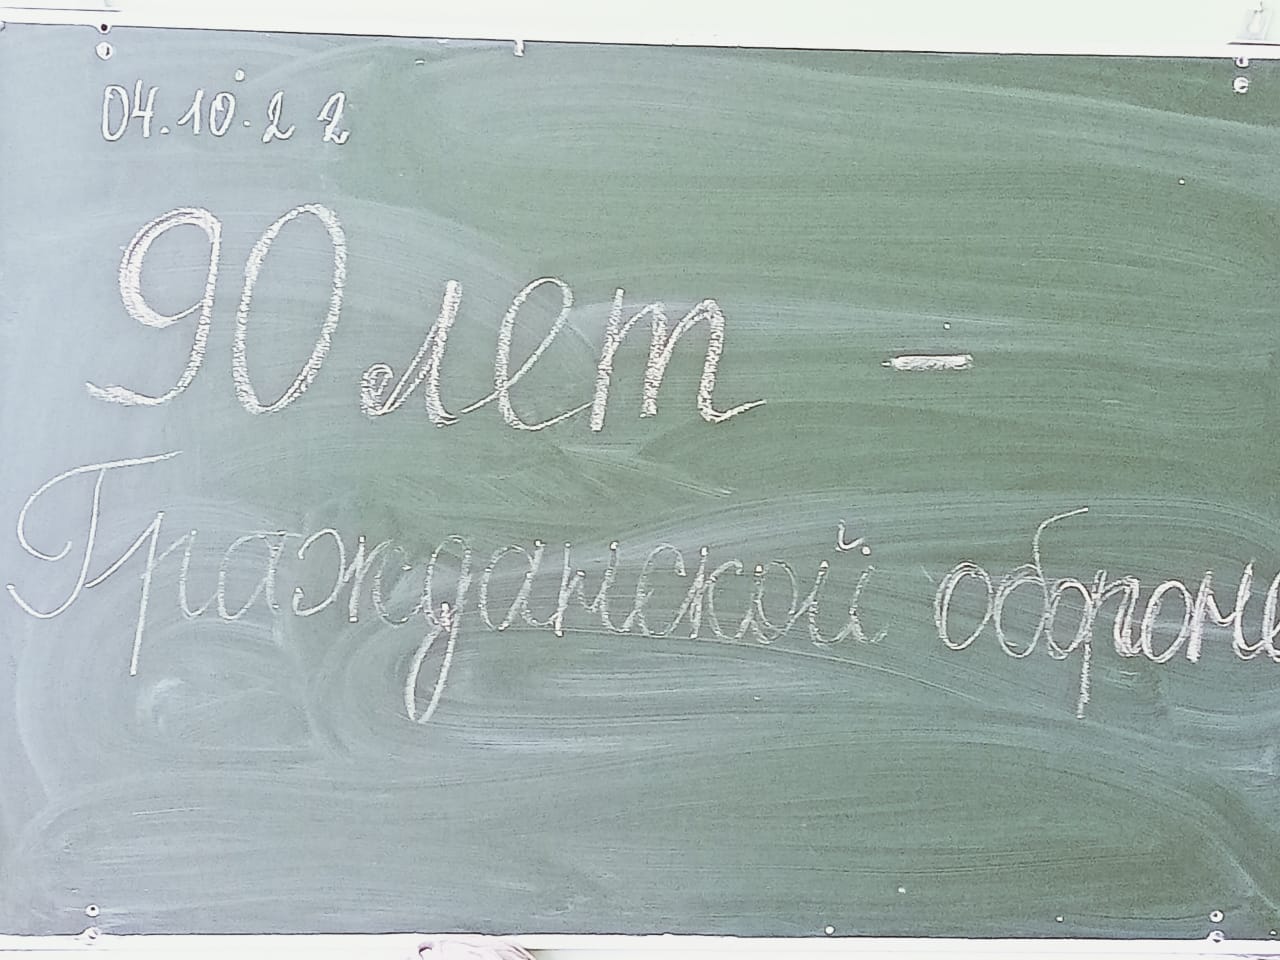 04.10.22
90 лет -
Гражданской обороне